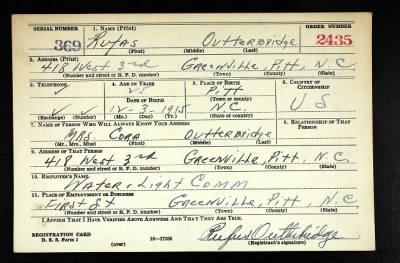 SERIAL NUMBER 1. NAME (Print) ORDER NUMBER
369 Rufas Outterbridge 2435
(First) (Middle) (Last)
2. ADDRESS (Print)
418 West 3rd Greenville, Pitt, N.C.
(Number and street or R. F. D. number) (Town) (County) (State)
3. TELEPHONE 4. AGE IN YEARS 5. PLACE OF BIRTH 6. COUNTRY OF CITIZENSHIP
25 Pitt
DATE OF BIRTH (Town or county)
12-3-1915 N.C. U S
(Exchange) (Number) (Mo.) (Day) (Yr.) (State or country)
7. NAME OF PERSON WHO WILL ALWAYS KNOW YOUR ADDRESS 8. RELATIONSHIP OF THAT PERSON
Mrs. Cora Outterbridge
(Mr., Mrs., Miss) (First) (Middle) (Last)
9. ADDRESS OF THAT PERSON
418 West 3rd Greenville, Pitt, N.C.
(Number and street or R. F. D. number) (Town) (County) (State)
10. EMPLOYER'S NAME
Water & Light Comm
11. PLACE OF EMPLOYMENT OR BUSINESS
First St Greenville, Pitt, N.C.
(Number and street or R. F. D. number) (Town) (County) (State)
I AFFIRM THAT I HAVE VERIFIED ABOVE ANSWERS AND THAT THEY ARE TRUE.
REGISTRATION CARD Rufus Outterbridge
D. S. S. Form 1 (over) 16—17105 (Registrant's signature)